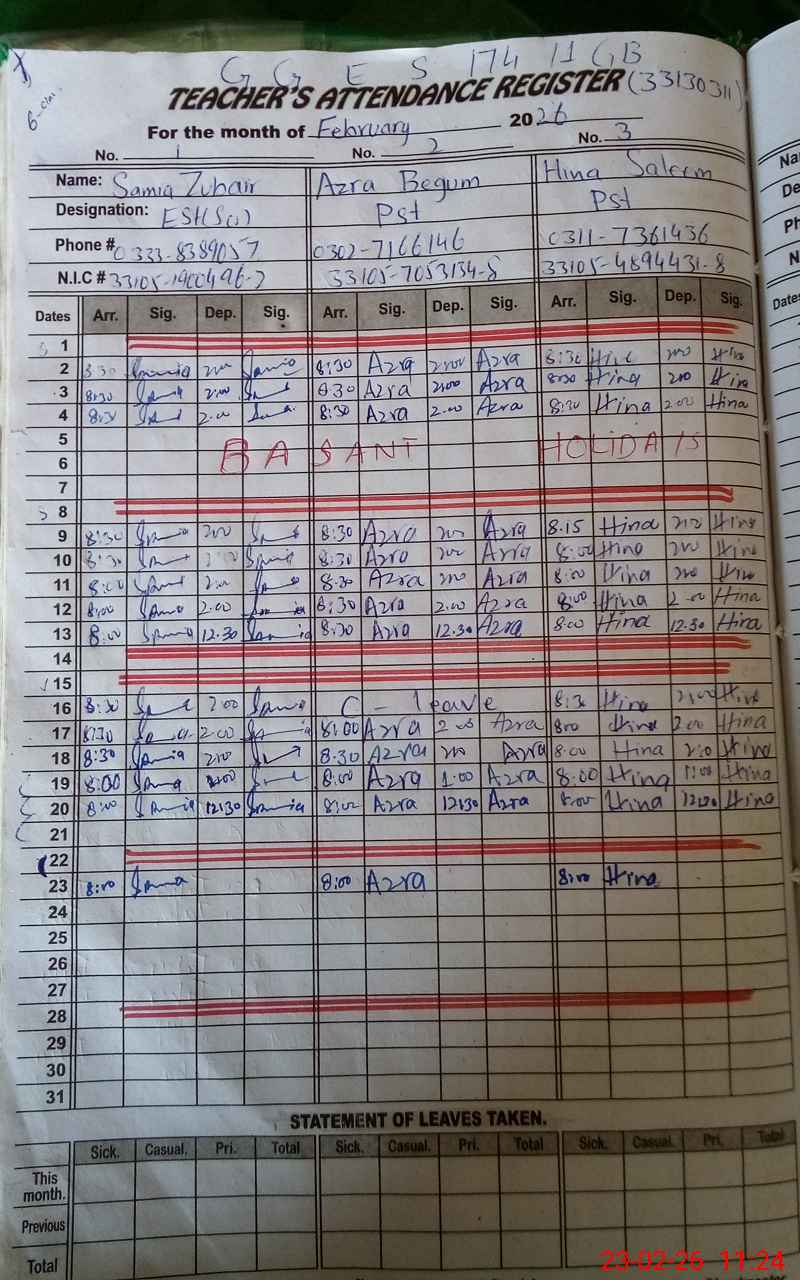 G G E S 174 11 GB
TEACHER'S ATTENDANCE REGISTER (33130311)
For the month of February 2026
No. 1 No. 2 No. 3
Name: Samia Zuhair Azra Begum Hina Saleem
Designation: EST(Sci) Pst Pst
Phone # 0333-8389057 0302-7166146 0311-7361436
N.I.C # 33105-1900496-2 33105-7053134-8 33105-4894431-8
Dates Arr. Sig. Dep. Sig. Arr. Sig. Dep. Sig. Arr. Sig. Dep. Sig.
1
2 8:30 Samia 2:00 Samia 8:30 Azra 2:00 Azra 8:30 Hina 2:00 Hina
3 8:30 2:00 8:30 Azra 2:00 Azra 8:30 Hina 2:00 Hina
4 8:30 2.00 8:30 Azra 2.00 Azra 8:30 Hina 2:00 Hina
5
BASANT HOLIDAYS
6
7
8
9 8:30 2:00 8:30 Azra 2:00 Azra 8.15 Hina 2:00 Hina
10 8:30 2:00 8:30 Azra 2:00 Azra 8:00 Hina 2:00 Hina
11 8:00 2:00 8:30 Azra 2:00 Azra 8:00 Hina 2:00 Hina
12 8:00 2.00 8:30 Azra 2.00 Azra 8:00 Hina 2:00 Hina
13 8:00 Samia 12.30 Samia 8:30 Azra 12.30 Azra 8:00 Hina 12.30 Hina
14
15
16 8:30 2:00 C - leave 8:30 Hina 2:00 Hina
17 8:30 2.00 8:00 Azra 2:00 Azra 8:00 Hina 2:00 Hina
18 8:30 Samia 2:00 8.30 Azra 2:00 Azra 8:00 Hina 2:00 Hina
19 8:00 1:00 8:00 Azra 1:00 Azra 8:00 Hina 1:00 Hina
20 8:00 Samia 12:30 Samia 8:00 Azra 12:30 Azra 8:00 Hina 12:30 Hina
21
22
23 8:00 Sama 8:00 Azra 8:00 Hina
24
25
26
27
28
29
30
31
STATEMENT OF LEAVES TAKEN.
Sick. Casual. Pri. Total Sick. Casual. Pri. Total Sick. Casual. Pri. Total
This
month.
Previous
Total
23-02-26 11:24